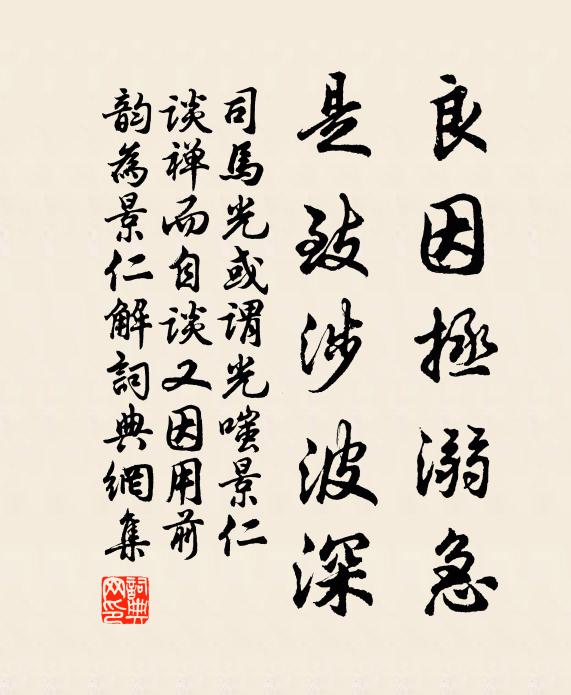 良因拯溺急
是致涉波深
司馬光或謂光嗤景仁
談禅而自談又因用前
韵為景仁解詞典網集
詞典網印